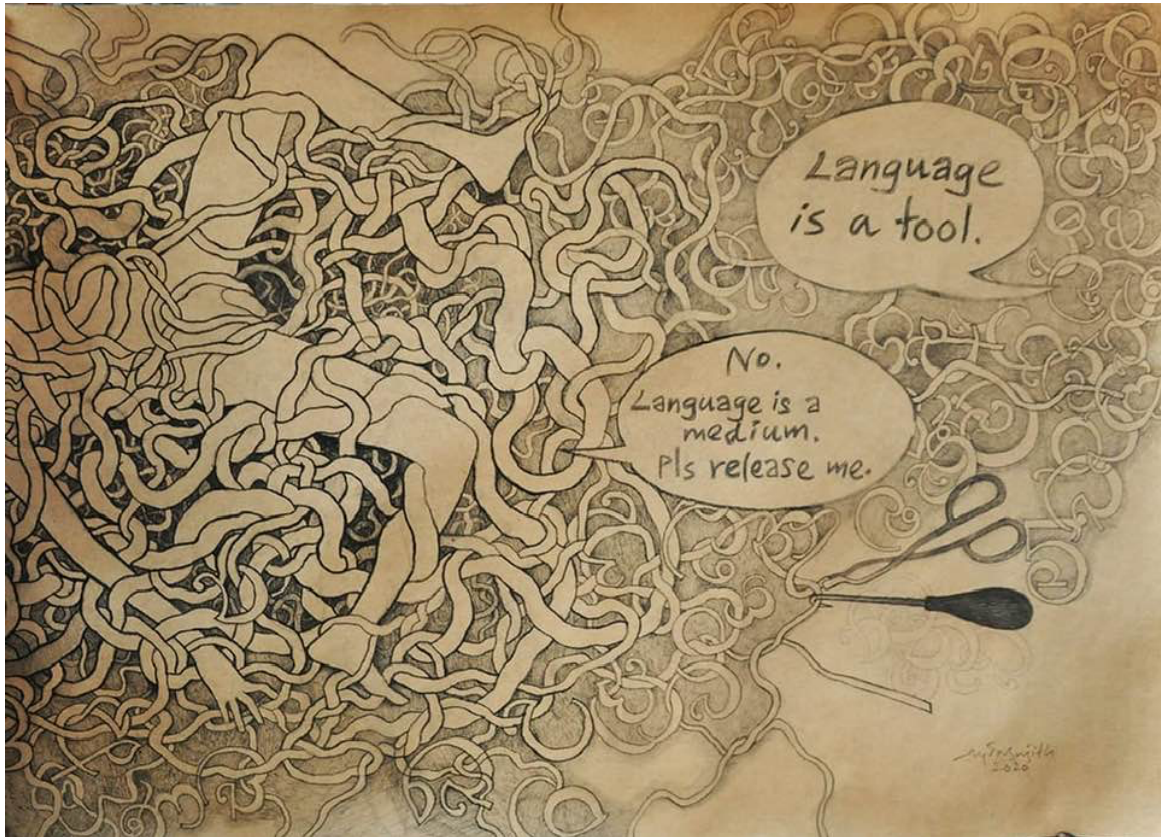 Language
is a tool.
No.
Language is a
medium.
Pls release me.
2020